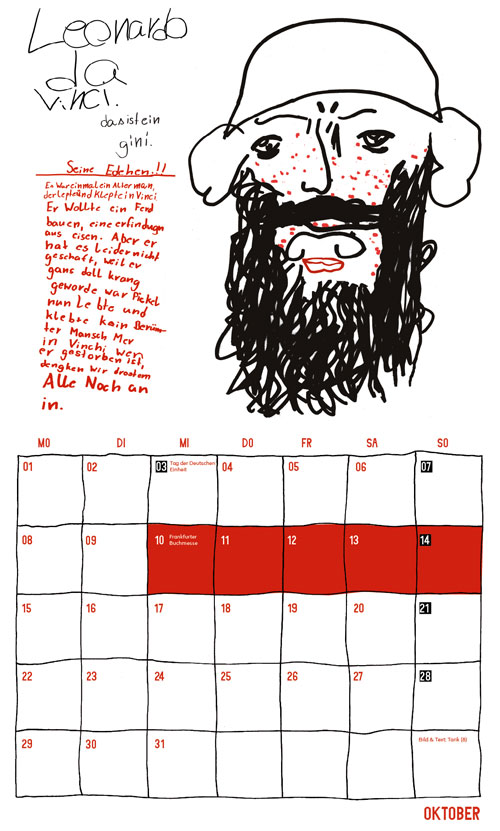 Leonardo
da
Vinci.
das ist ein
gini.
Seine Edehen.!!
Es war einmal ein Alter man,
der Lepte und Klepte in Vinci
Er Wollte ein Ferd
bauen, eine erfindugn
aus eisen. Aber er
hat es leider nicht
geschaft, weil er
gans doll krang
geworde war Pickel
nun le bte und
klebte kain Berüm-
ter Mansch Mer
in Vinchi Wen
er gastorben ist,
dengken wir drostem
Alle Noch an
in.
MO DI MI DO FR SA SO
01 02 03 Tag der Deutschen 04 05 06 07
Einheit
08 09 10 Frankfurter 11 12 13 14
Buchmesse
15 16 17 18 19 20 21
22 23 24 25 26 27 28
29 30 31 Bild & Text: Tarik (8)
OKTOBER